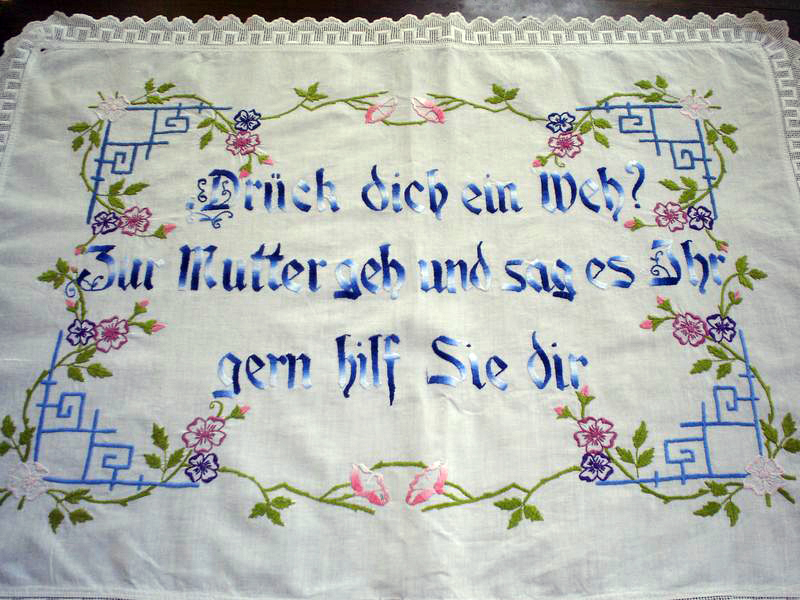 Drück dich ein Weh?
Zur Mutter geh und sag es Ihr
gern hilf Sie dir